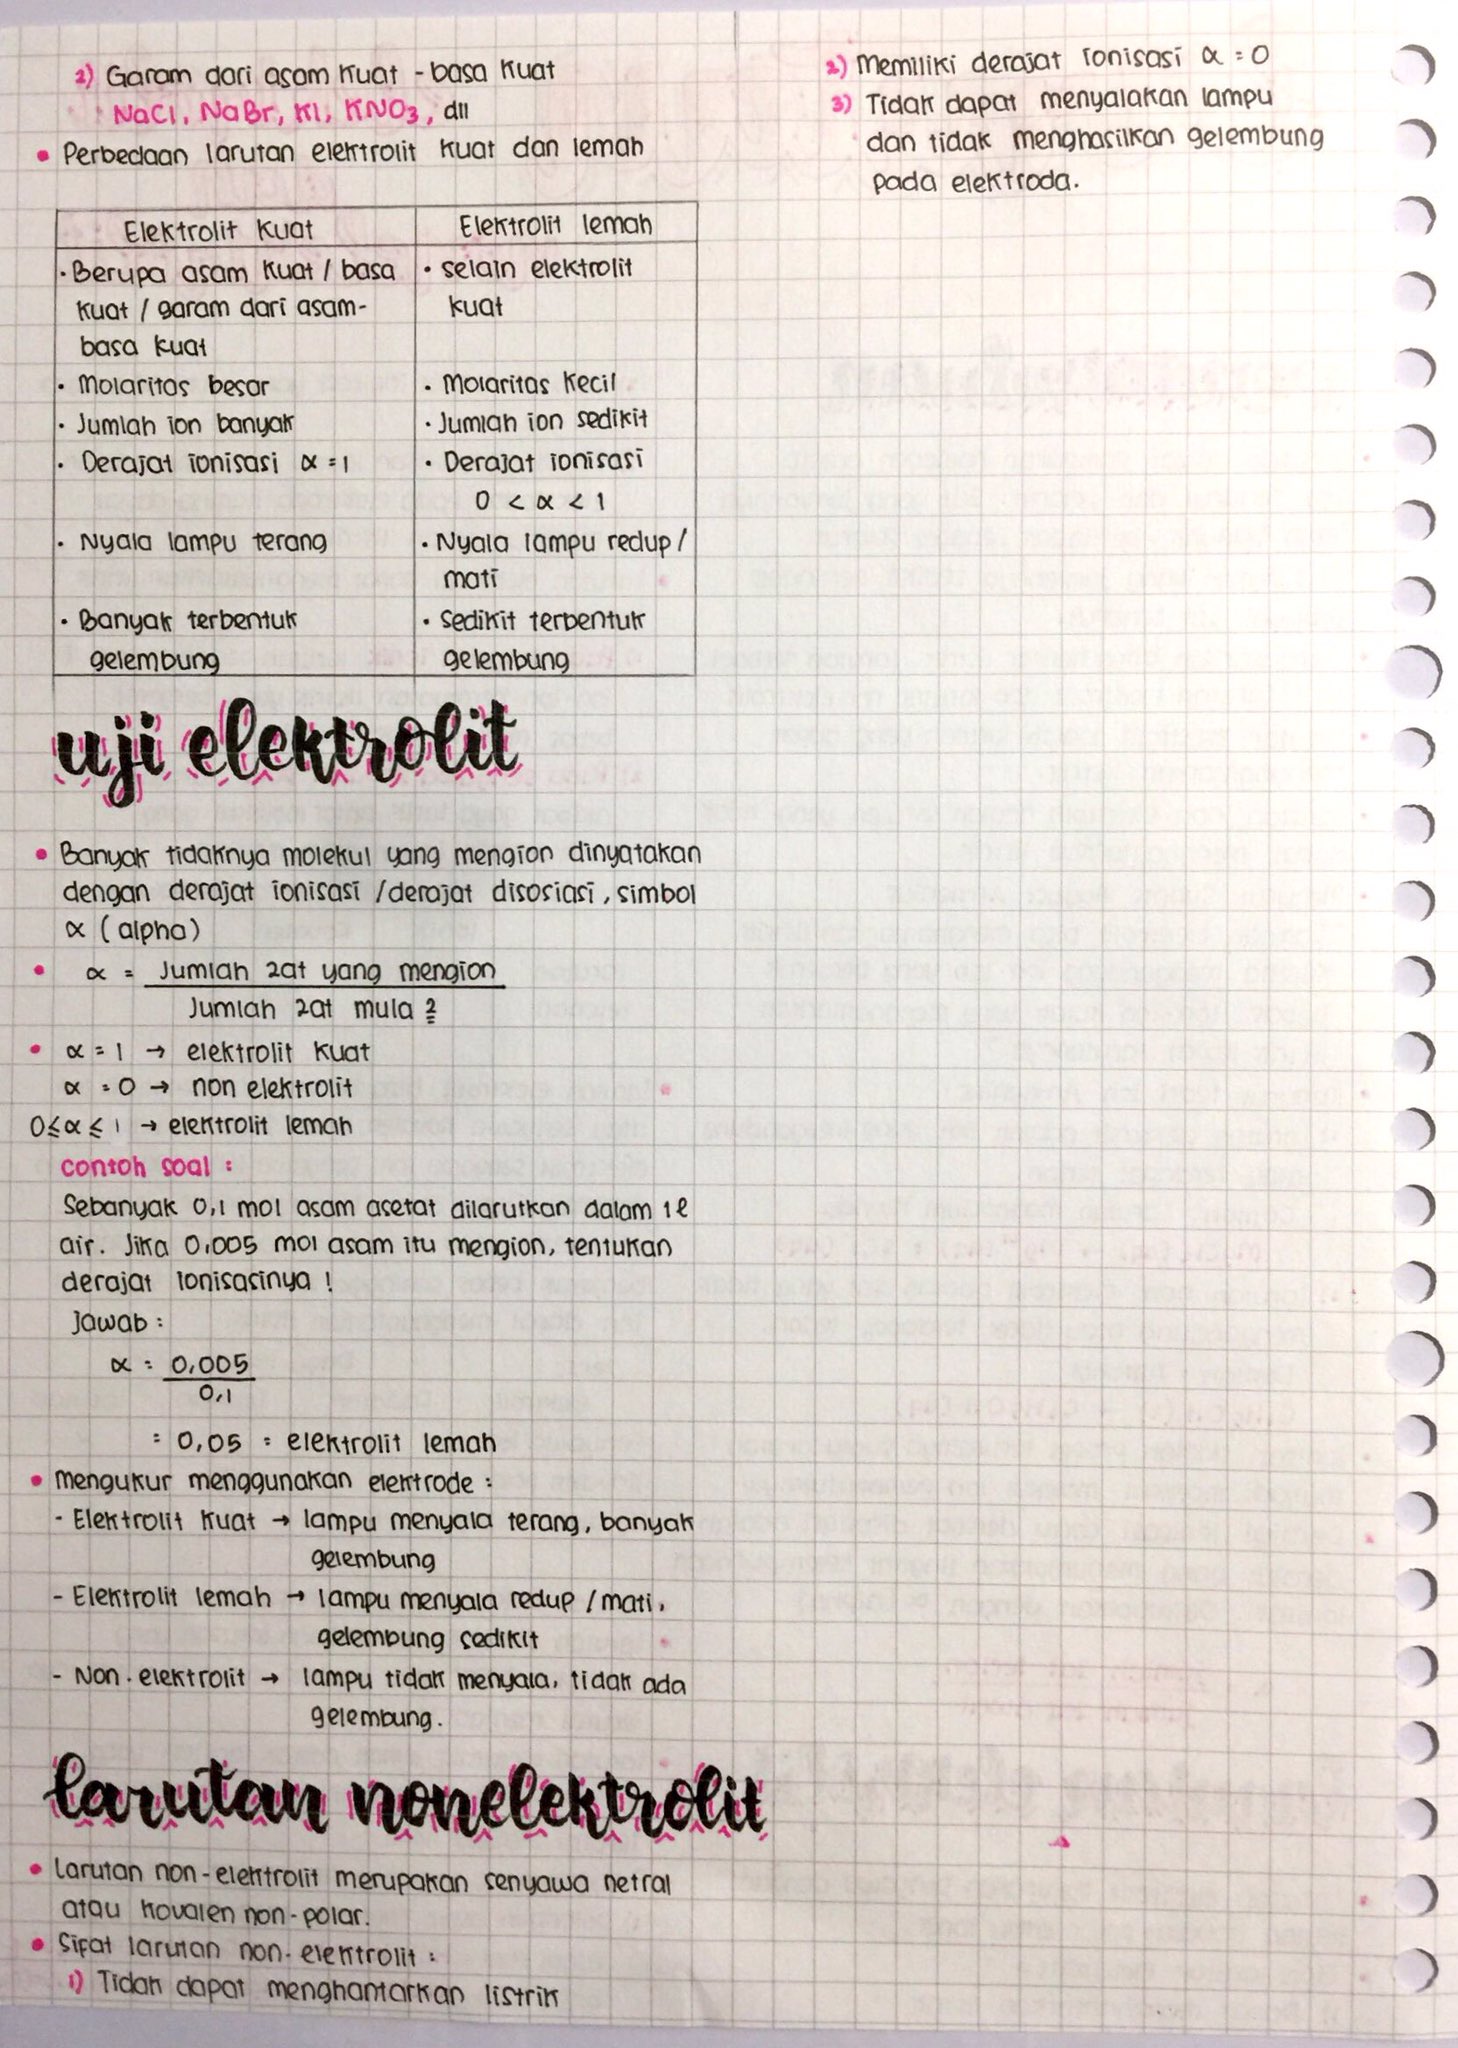 2) Garam dari asam kuat - basa kuat
NaCl, NaBr, KI, KNO3, dll
• Perbedaan larutan elektrolit kuat dan lemah
Elektrolit kuat
Elektrolit lemah
· Berupa asam kuat / basa
kuat / garam dari asam-
basa kuat
· selain elektrolit
kuat
· Molaritas besar
· Molaritas kecil
· Jumlah ion banyak
· Jumlah ion sedikit
· Derajat ionisasi α = 1
· Derajat ionisasi
0 < α < 1
· Nyala lampu terang
· Nyala lampu redup /
mati
· Banyak terbentuk
gelembung
· Sedikit terbentuk
gelembung
uji elektrolit
• Banyak tidaknya molekul yang mengion dinyatakan
dengan derajat ionisasi / derajat disosiasi, simbol
α (alpha)
• α = Jumlah zat yang mengion
Jumlah zat mula 2
• α = 1 → elektrolit kuat
α = 0 → non elektrolit
0 ≤ α ≤ 1 → elektrolit lemah
contoh soal :
Sebanyak 0,1 mol asam asetat dilarutkan dalam 1 l
air. Jika 0,005 mol asam itu mengion, tentukan
derajat ionisasinya !
Jawab :
α = 0,005
0,1
= 0,05 = elektrolit lemah
• Mengukur menggunakan elektrode :
- Elektrolit kuat → lampu menyala terang, banyak
gelembung
- Elektrolit lemah → lampu menyala redup / mati,
gelembung sedikit
- Non-elektrolit → lampu tidak menyala, tidak ada
gelembung.
larutan nonelektrolit
• Larutan non-elektrolit merupakan senyawa netral
atau kovalen non-polar.
• Sifat larutan non-elektrolit :
1) Tidak dapat menghantarkan listrik
2) Memiliki derajat ionisasi α = 0
3) Tidak dapat menyalakan lampu
dan tidak menghasilkan gelembung
pada elektroda.